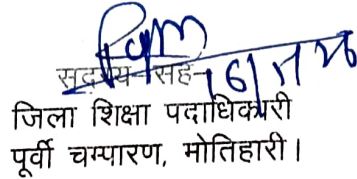 सदस्य-सह-
जिला शिक्षा पदाधिकारी
पूर्वी चम्पारण, मोतिहारी।